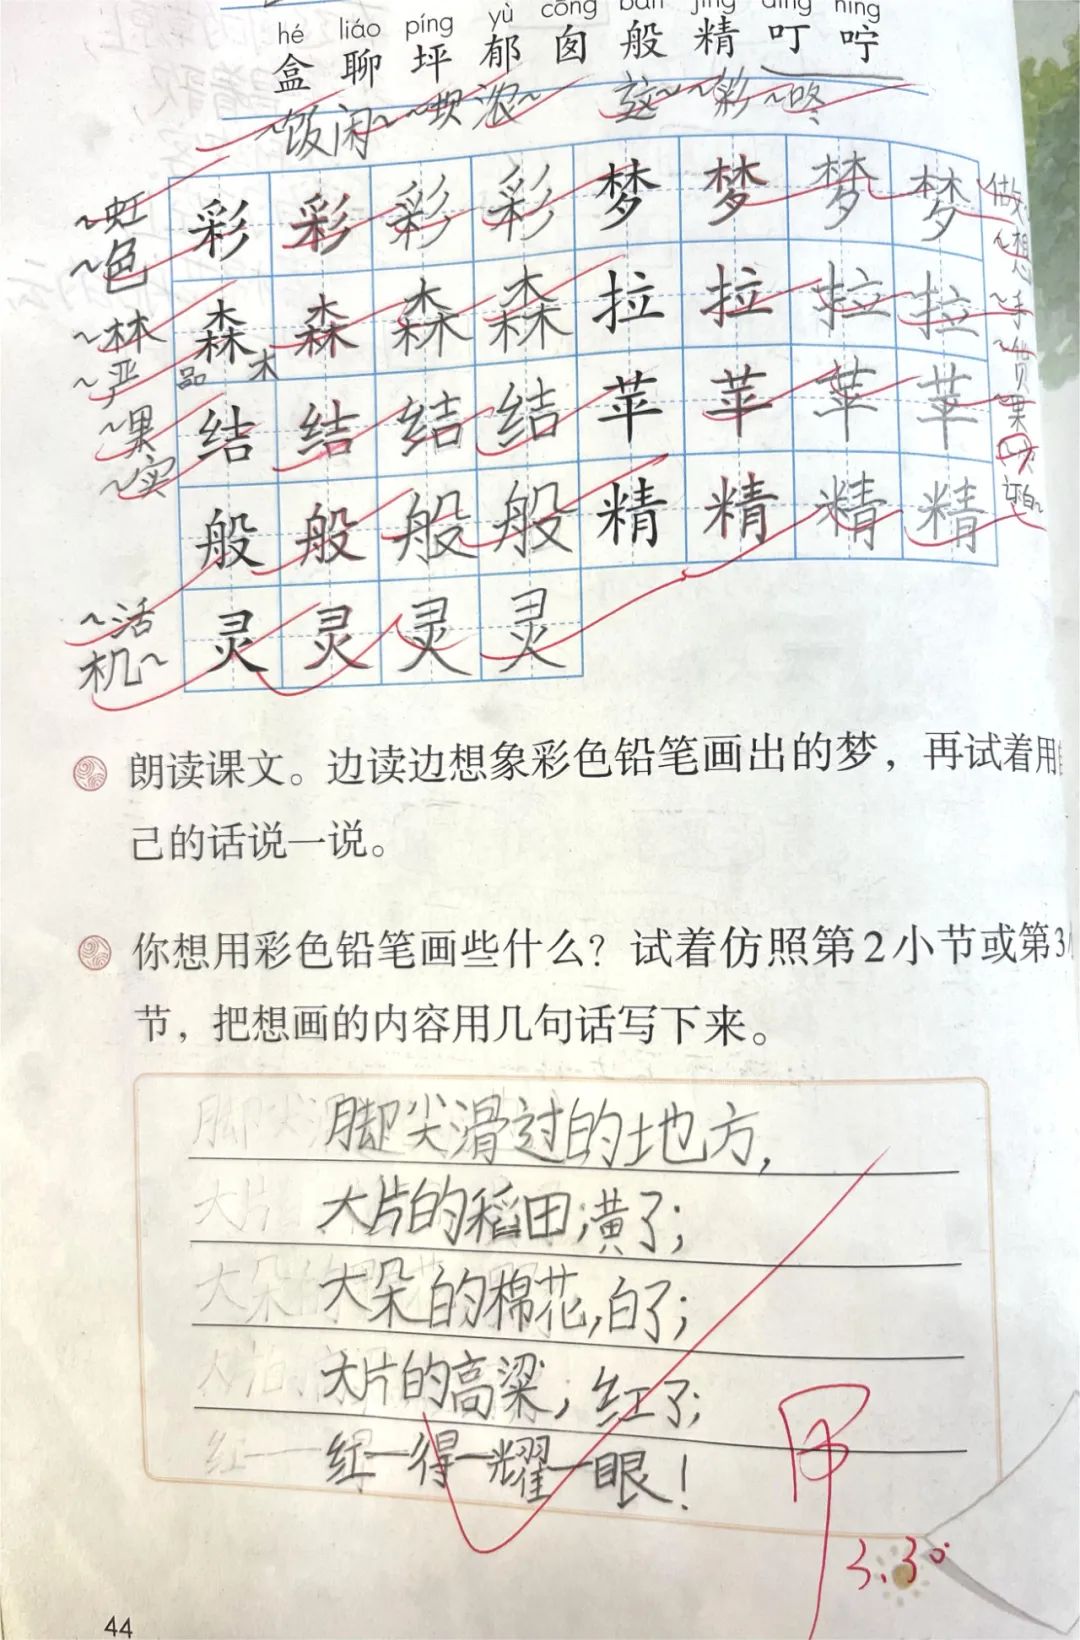 hé liáo píng yù cōng bān jīng dīng níng
盒 聊 坪 郁 囱 般 精 叮 咛
~饭 闲~ ~坝 浓~ 这~ ~彩 ~咚
~虹 彩 彩 彩 彩 梦 梦 梦 梦 做~
~色 ~想
~林 森 森 森 森 拉 拉 拉 拉 ~手
~严 品 木 ~货
~果 结 结 结 结 苹 苹 苹 苹 ~果
~实
般 般 般 般 精 精 精 精
~活 灵 灵 灵 灵
机~
朗读课文。边读边想象彩色铅笔画出的梦，再试着用
己的话说一说。
你想用彩色铅笔画些什么？试着仿照第2小节或第3小
节，把想画的内容用几句话写下来。
脚尖滑过的地方，
大片的稻田，潢了；
大朵的棉花，白了；
大片的高粱，红了；
红—得—耀—眼！
甲
3.30
44